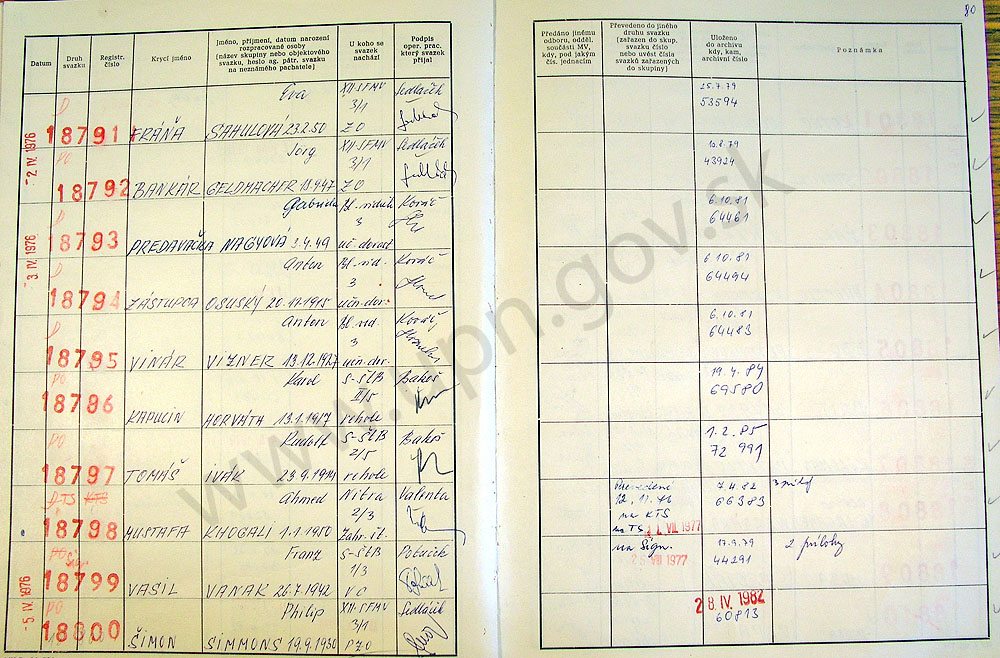 80
Datum
Druh svazku
Registr. číslo
Krycí jméno
Jméno, příjmení, datum narození
rozpracované osoby
(název skupiny nebo objektového
svazku, heslo ag. pátr. svazku
na neznámého pachatele)
U koho se
svazek
nachází
Podpis
oper. prac.
který svazek
přijal
Předáno jinému
odboru, odděl.
součásti MV,
kdy, pod jakým
čís. jednacím
Převedeno do jiného
druhu svazku
(zařazen do skup.
svazku číslo
nebo uvést číslo
svazků zařazených
do skupiny)
Uloženo
do archivu
kdy, kam,
archivní číslo
Poznámka
D Eva XII-SFMV Sedláčik 25.7.79
3/1 53594
- 2. IV. 1976 18791 FRÁŇA SAHULOVÁ 23.2.50 ZO
PO Jorg XII-SFMV Sedláčik
3/1 43924
18792 BANKÁR ZO
D Gabriela Kováč 6.10.81
3 64461
- 3. IV. 1976 18793 PREDAVAČKA NAGYOVÁ 3.4.49
D Anton Bl. vid. Kováč 6.10.81
3 64494
18794 ZÁSTUPCA OSUSKÝ 20.11.1915
D Anton Bl. vid. Kováč 6.10.81
3 64483
18795 VINÁR VIZNER 13.12.1927
PO Karol S-ŠtB Bakoš 19.4.84
II/5 69580
18796 KAPUCIN HORVÁTH 13.1.1917 rehole
PO Rudolf S-ŠtB Bakoš 1.2.85
2/5 72991
18797 TOMÁŠ IVÁK rehole
DTS KTS Ahmed Nitra Valenta 12.11.76 7.4.82
2/3 na KTS 66383
18798 MUSTAFA KHOGALI 1.1.1950 na TS VII. 1977
PO Franz S-ŠtB na Sign. 17.9.79 2 prílohy
1/3 VII 1977 44291
- 5. IV. 1976 18799 VASIL VANAK 26.7.1942 VO
PO Philip XII-SFMV Sedláčik 28. IV. 1982
3/1 60813
18800 ŠIMON SIMMONS 19.9.1930 PZO
www.upn.gov.sk